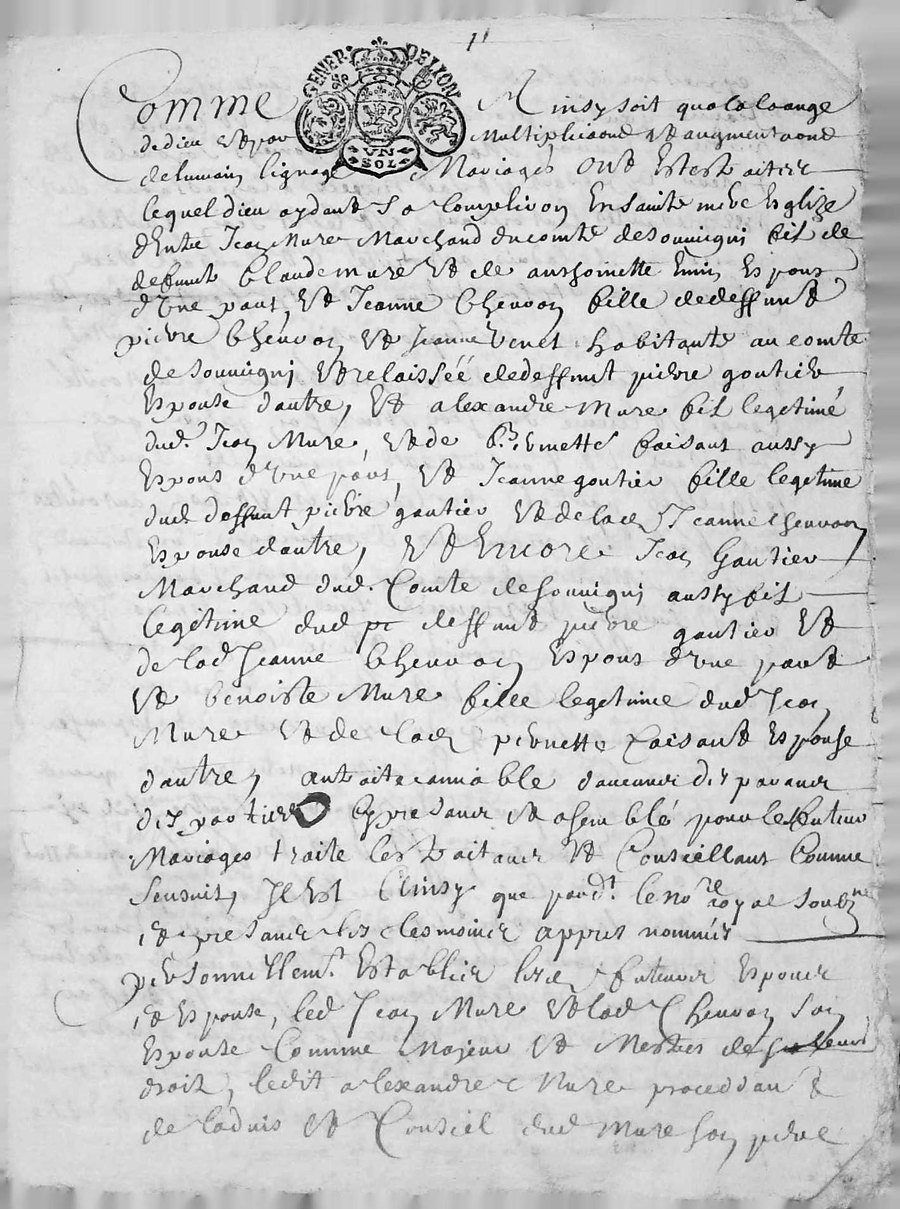 1
GENER. DE LION
UN
SOL
Comme Ainsy soit qua la loange
de dieu et pour multiplicaone et augmentaone
de lumain lignage Mariages ont estest aitier
lequel dieu aydant sa complivon en sainte mere Esglize
d'Entre Jean Mure Marchand du comte de Souvigni fil de
deffunt Claude mure et de anthoinette Espous
d'vne part, et Jeanne Chervon fille de deffunt
pierre Chervon et Jeanne Venet habitante au comte
de Souvigni et relaissée de deffunt pierre goutier
Espouse d'autre, et alexandre Mure fil legetimé
dud. Jean Mure, et de pernette faisant aussy
Espous d'vne part, et Jeanne goutier fille legetime
dud deffunt pierre gautier et de lad Jeanne Chervon
Espouse dautre, et Encore Jean Gautier
Marchand dud. Comte de Souvigni aussy fil
legetime dud deffunt pierre gautier et
de lad Jeanne Chervon Espous d'vne part
et benoiste Mure fille legetime dud Jean
Mure et de lad pernette faisant Espouse
dautre, dis par aucr
dis partier assemblé pour le futeur
Mariages traite les traitaner et Conseillant Comme
sensuit, Il est Ainsy que pard.t le no.re royal soubz.ne
et presanter les tesmoiner appres nommés
personnellem.t Establier futeurs Espouer
et Espouse, led Jean Mure et lad Chervon son
Espouse Comme Majeur et Mestres de
droit, ledit alexandre Mure proceddant
de ladvis et Conseil dud mure son pere